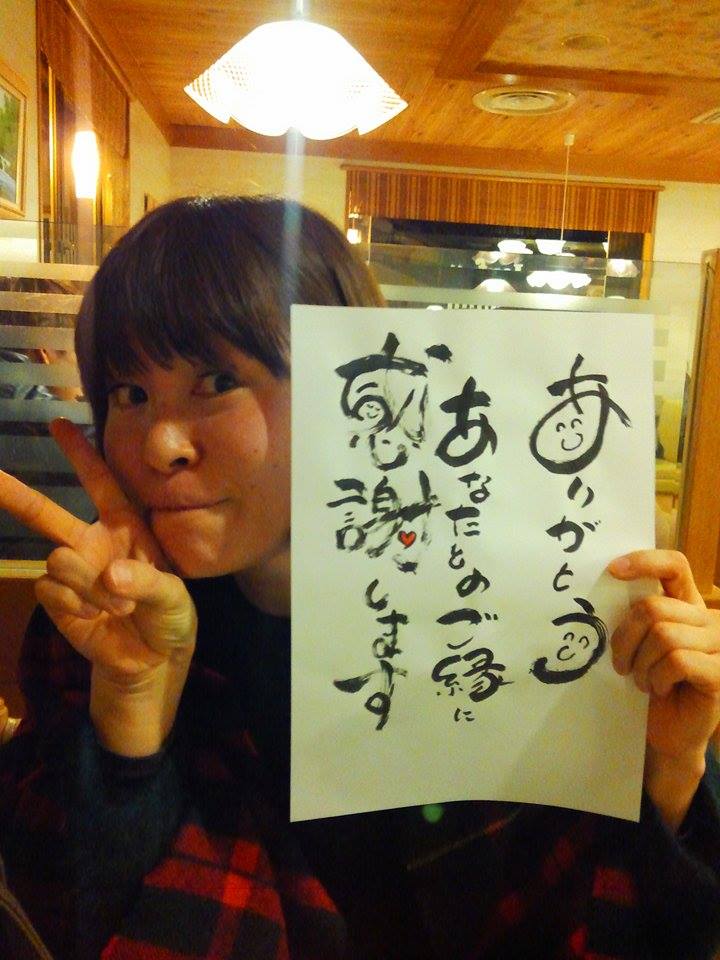 ありがとう
あなたとのご縁に
感謝します